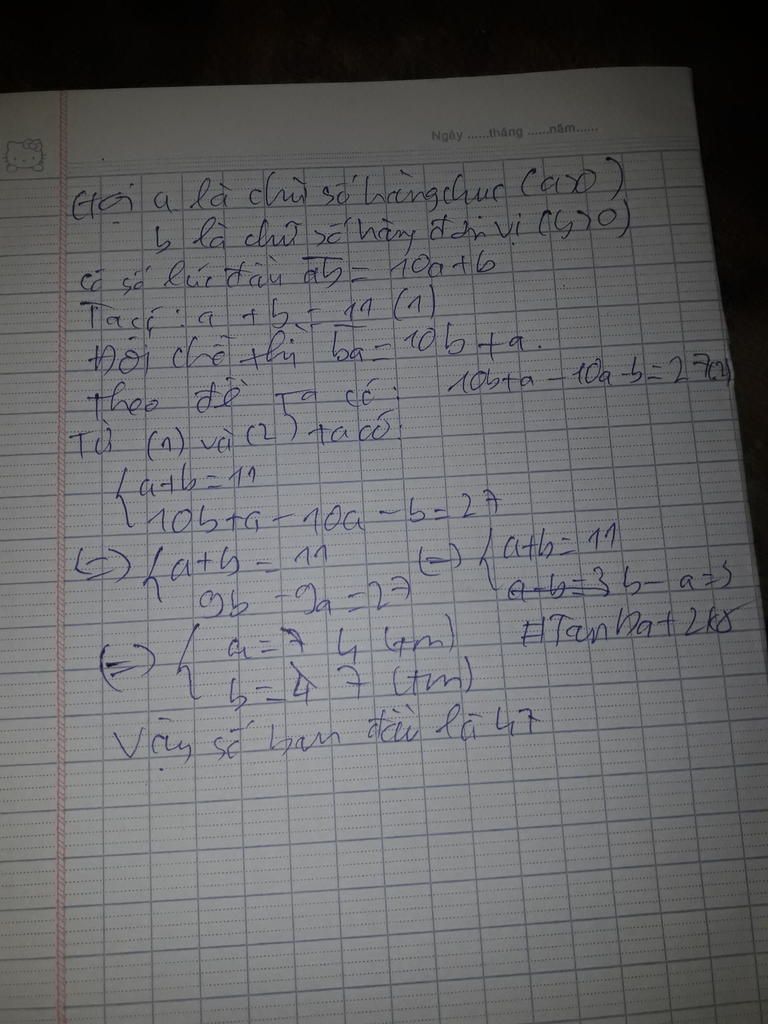 Ngày ......tháng ......năm......
Gọi a là chữ số hàng chục (a>0)
b là chữ số hàng đơn vị (b>0)
Có số lúc đầu ab = 10a+b
Ta có : a + b = 11 (1)
Đổi chỗ thì ba = 10b + a.
theo đề Ta có: 10b+a - 10a-b = 27(2)
Từ (1) và (2) ta có:
{ a+b = 11
10b+a - 10a - b = 27
(=) { a+b = 11 (=) { a+b = 11
9b - 9a = 27 a-b=3 b - a = 3
(=) { a = 7 4 (tm)
b = 4 7 (tm)
Vậy số ban đầu là 47